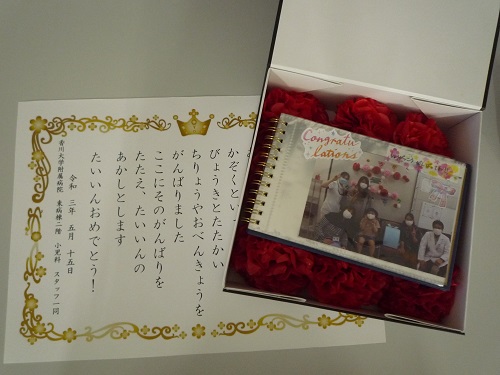 かぞくとい
びょうきとたたかい
ちりょうやおべんきょうを
がんばりました
ここにそのがんばりを
たたえ、たいいんの
あかしとします
たいいんおめでとう！
令和 三年 五月 十五日
香川大学附属病院 東病棟二階 小児科 スタッフ一同
Congratu
lations